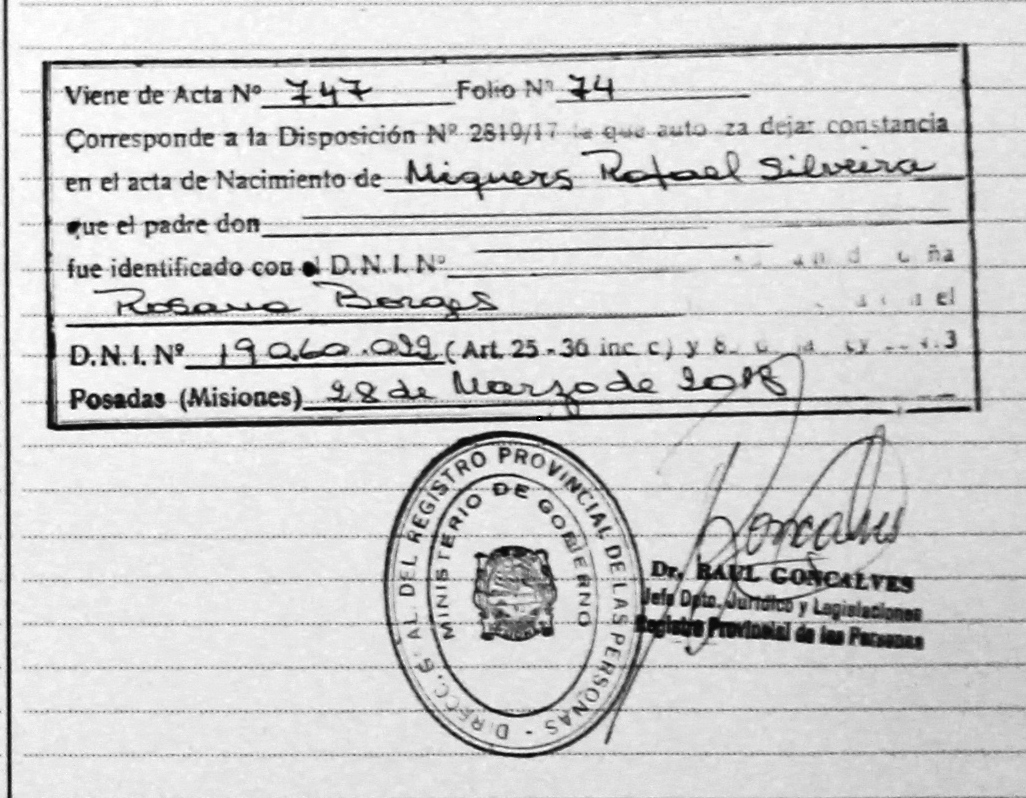 Viene de Acta Nº 747 Folio Nº 74
Corresponde a la Disposición Nº 2819/17 la que auto za dejar constancia
en el acta de Nacimiento de Miquers Rafael Silveira
que el padre don
fue identificado con el D.N.I. Nº ña
Rosana Borges el
D.N.I. Nº 19.060.099 (Art. 25 - 36 inc c) y
Posadas (Misiones) 28 de Marzo de 2018
DIRECC. GRAL. DEL REGISTRO PROVINCIAL DE LAS PERSONAS
MINISTERIO DE GOBIERNO
Goncalves
Dr. RAUL GONCALVES
Jefe Dpto. Jurídico y Legislaciones
Registro Provincial de las Personas